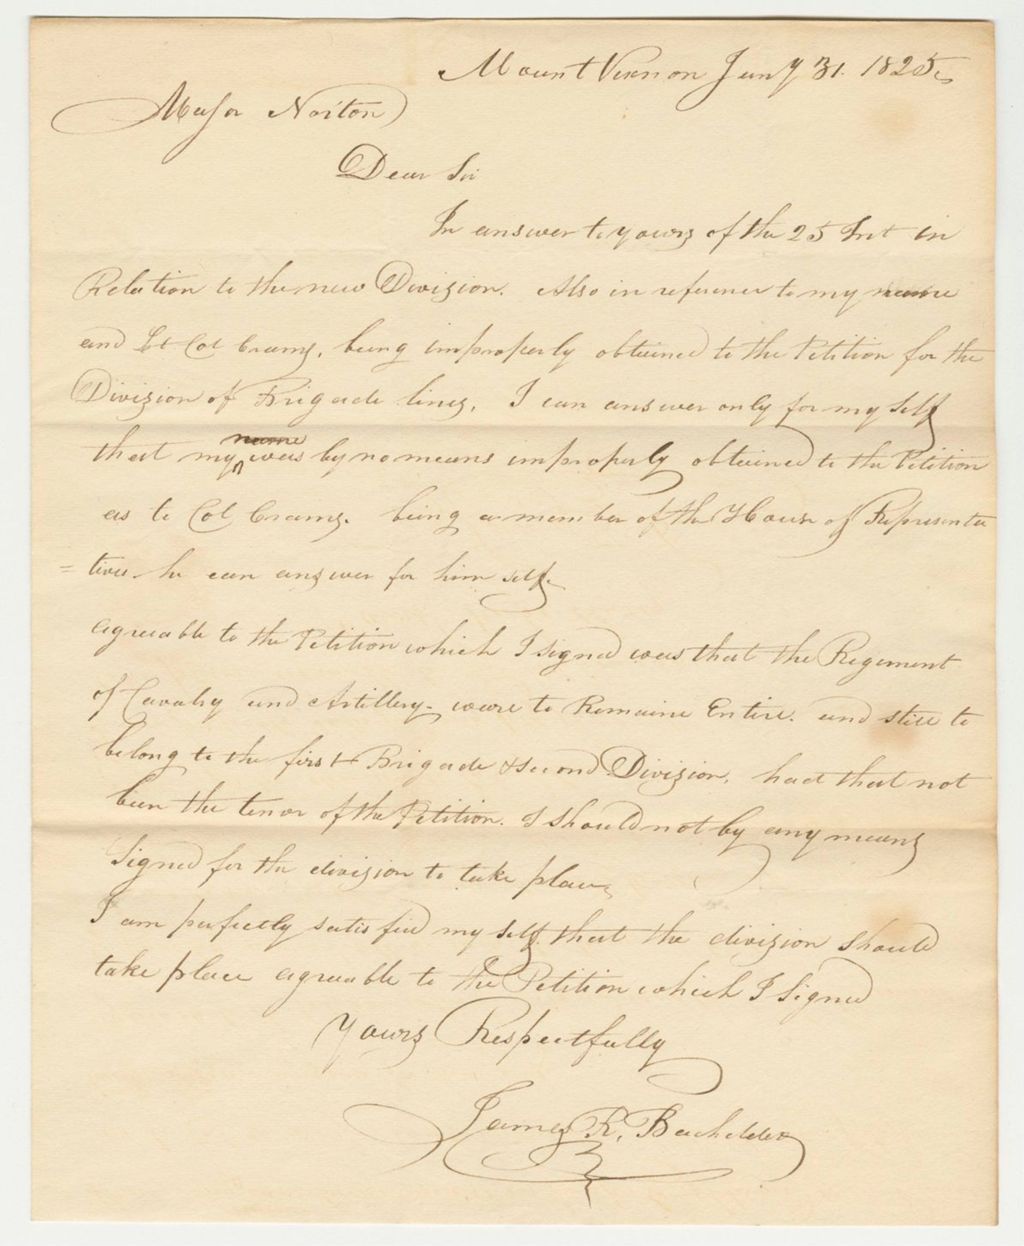 Mount Vernon Jany 31. 1825,
Major Norton
Dear Sir
In answer to yours of the 25 Inst in
Relation to the new Division. Also in reference to my name
and Lt Col Crams, being improperly obtained to the Petition for the
Division of Brigade lines, I can answer only for my self
that my name was by no means improperly obtained to the Petition
as to Col Crams. being a member of the House of Representa
=tives he can answer for him self.
agreable to the Petition which I signed was that the Regiment
of Cavalry and Artillery - ware to Remaine Entire. and still to
belong to the first Brigade & Second Division, had that not
been the tenor of the Petition. I should not by any means
Signed for the division to take place,
I am perfectly satisfied my self that the division should
take place agreable to the Petition which I Signed
Yours Respectfully
James R. Bachelder